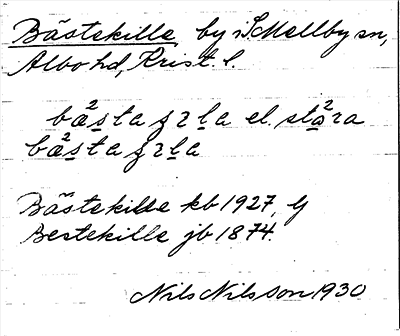 Bästekille by i S Mellby sn,
Albo hd, Krist. l.
bæ²stagɪla el. stɑ²ra
bæ²stagɪla
Bästekille kb 1927, Ej
Bestekille jb 1874.
Nils Nilsson 1930